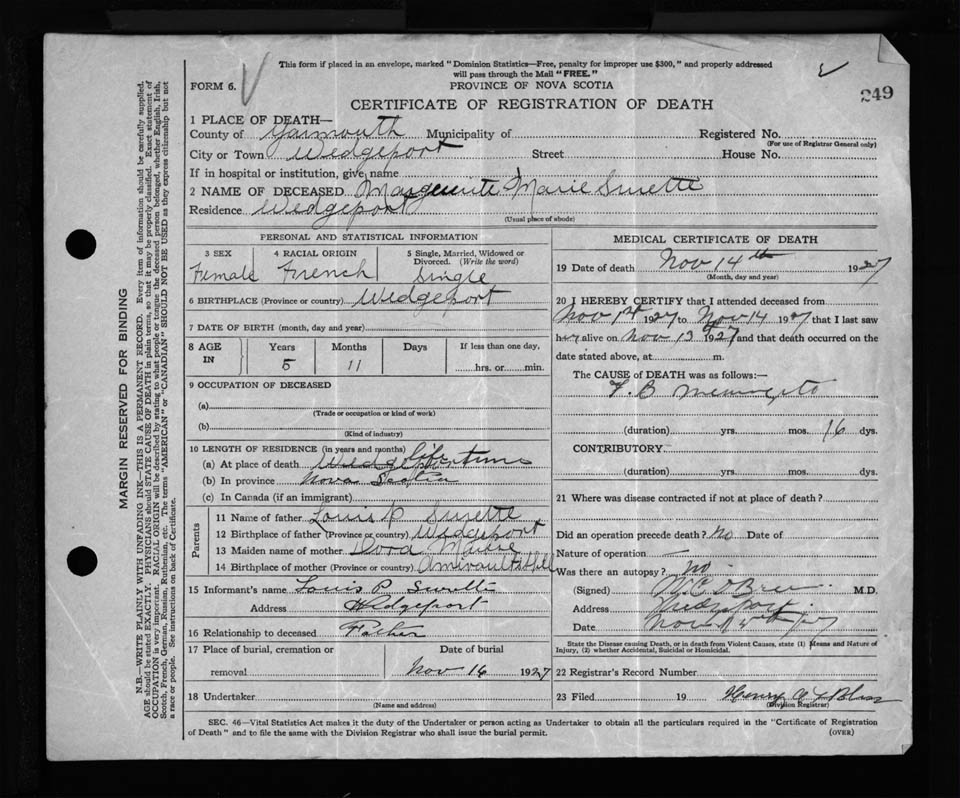 This form if placed in an envelope, marked "Dominion Statistics—Free, penalty for improper use $300," and properly addressed
will pass through the Mail "FREE."
FORM 6.
PROVINCE OF NOVA SCOTIA
249
CERTIFICATE OF REGISTRATION OF DEATH
1 PLACE OF DEATH—
County of Yarmouth Municipality of Registered No.
(For use of Registrar General only)
City or Town Wedgeport Street House No.
If in hospital or institution, give name
2 NAME OF DECEASED Marguerite Marie Surette
Residence Wedgeport
(Usual place of abode)
PERSONAL AND STATISTICAL INFORMATION
3 SEX 4 RACIAL ORIGIN 5 Single, Married, Widowed or Divorced. (Write the word)
Female French Single
6 BIRTHPLACE (Province or country) Wedgeport
7 DATE OF BIRTH (month, day and year)
8 AGE IN Years Months Days If less than one day,
5 11 hrs. or min.
9 OCCUPATION OF DECEASED
(a)
(Trade or occupation or kind of work)
(b)
(Kind of industry)
10 LENGTH OF RESIDENCE (in years and months)
(a) At place of death Wedgeport life time
(b) In province Nova Scotia
(c) In Canada (if an immigrant)
Parents
11 Name of father Louis P Surette
12 Birthplace of father (Province or country) Wedgeport
13 Maiden name of mother Dora
14 Birthplace of mother (Province or country) Amirault Hill
15 Informant's name Louis P Surette
Address Wedgeport
16 Relationship to deceased Father
17 Place of burial, cremation or Date of burial
removal Nov 16 1927
18 Undertaker
(Name and address)
MEDICAL CERTIFICATE OF DEATH
19 Date of death Nov 14th 1927
(Month, day and year)
20 I HEREBY CERTIFY that I attended deceased from
Nov 1st 1927 to Nov 14 1927 that I last saw
her alive on Nov 13 1927 and that death occurred on the
date stated above, at m.
The CAUSE of DEATH was as follows:—
T. B
(duration) yrs. mos. 16 dys.
CONTRIBUTORY.
(duration) yrs. mos. dys.
21 Where was disease contracted if not at place of death?
Did an operation precede death? no Date of
Nature of operation —
Was there an autopsy? no
(Signed) O'Brien M.D.
Address Wedgeport
Date Nov
State the Disease causing Death, or in death from Violent Causes, state (1) Means and Nature of
Injury, (2) whether Accidental, Suicidal or Homicidal.
22 Registrar's Record Number
23 Filed 19 Henry
(Division Registrar)
SEC. 46—Vital Statistics Act makes it the duty of the Undertaker or person acting as Undertaker to obtain all the particulars required in the "Certificate of Registration
of Death" and to file the same with the Division Registrar who shall issue the burial permit.
(OVER)
MARGIN RESERVED FOR BINDING
N.B.—WRITE PLAINLY WITH UNFADING INK—THIS IS A PERMANENT RECORD. Every item of information should be carefully supplied.
AGE should be stated EXACTLY. PHYSICIANS should STATE CAUSE OF DEATH in plain terms, so that it may be properly classified. Exact statement of
OCCUPATION is very important. RACIAL ORIGIN will be described by stating to what people or tongue the deceased person belonged, whether English, Irish,
Scotch, French, German, Russian, Ruthenian, etc. The terms "AMERICAN" or "CANADIAN" SHOULD NOT BE USED as they express citizenship but not
a race or people. See instructions on back of Certificate.